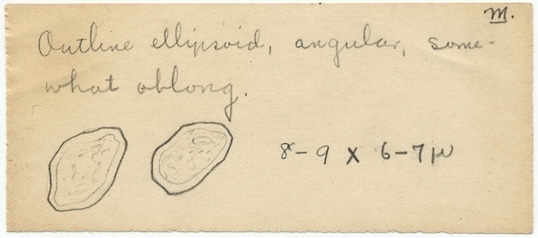 M.
Outline ellipsoid, angular, some-
what oblong.
8-9 x 6-7 µ